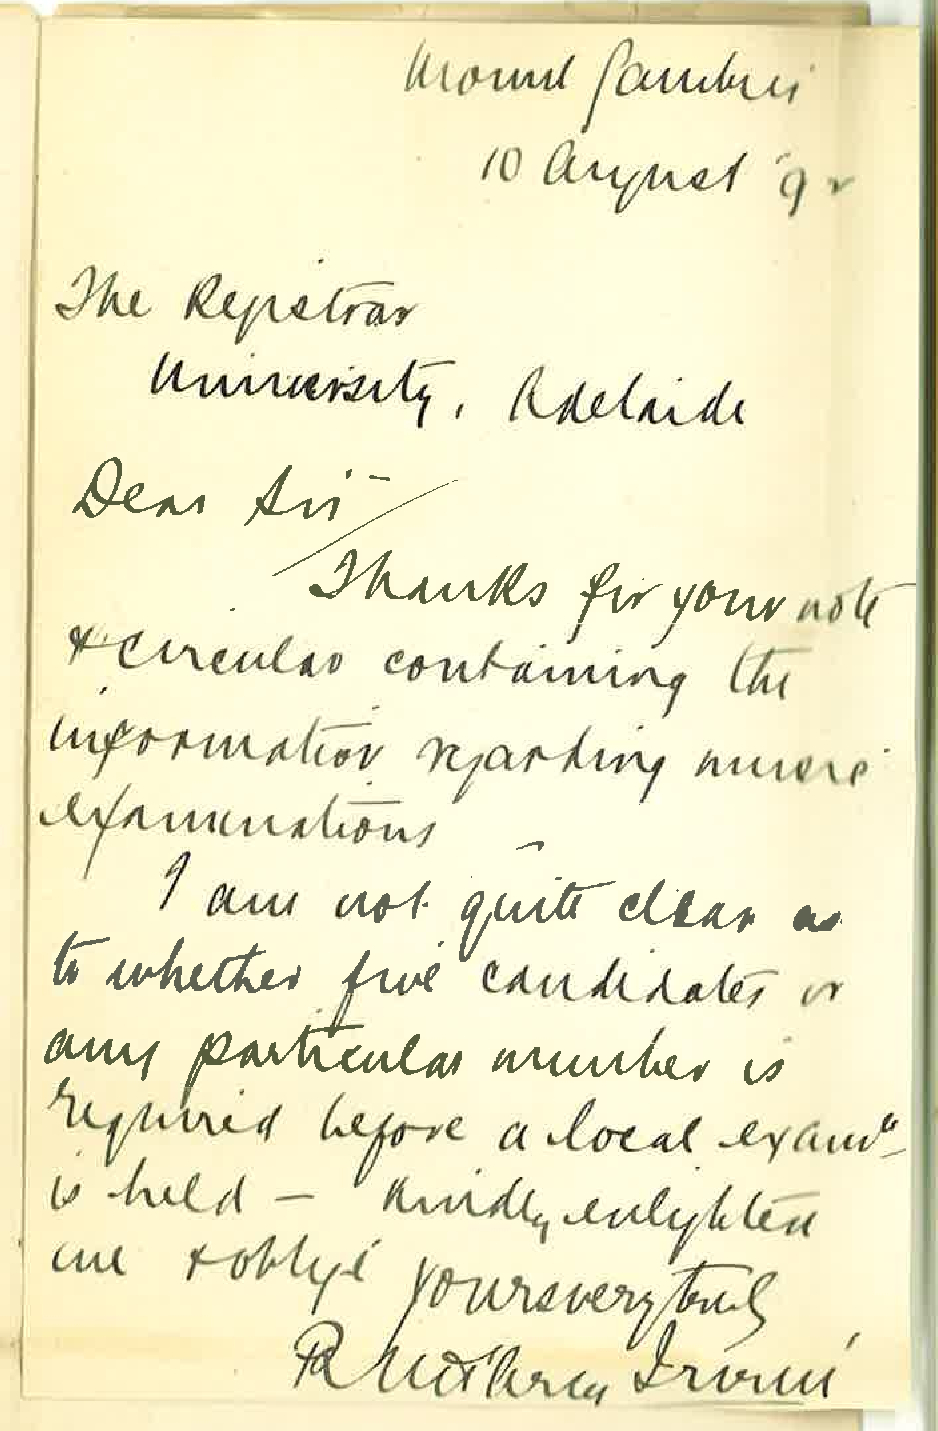 Mount Gambier
10 August '92
The Registrar
University, Adelaide
Dear Sir
Thanks for your note
& circular containing the
information regarding music
examinations
I am not quite clear as
to whether five candidates or
any particular number is
required before a local examn
is held — Kindly enlighten
me & oblige yours very truly
Irvine